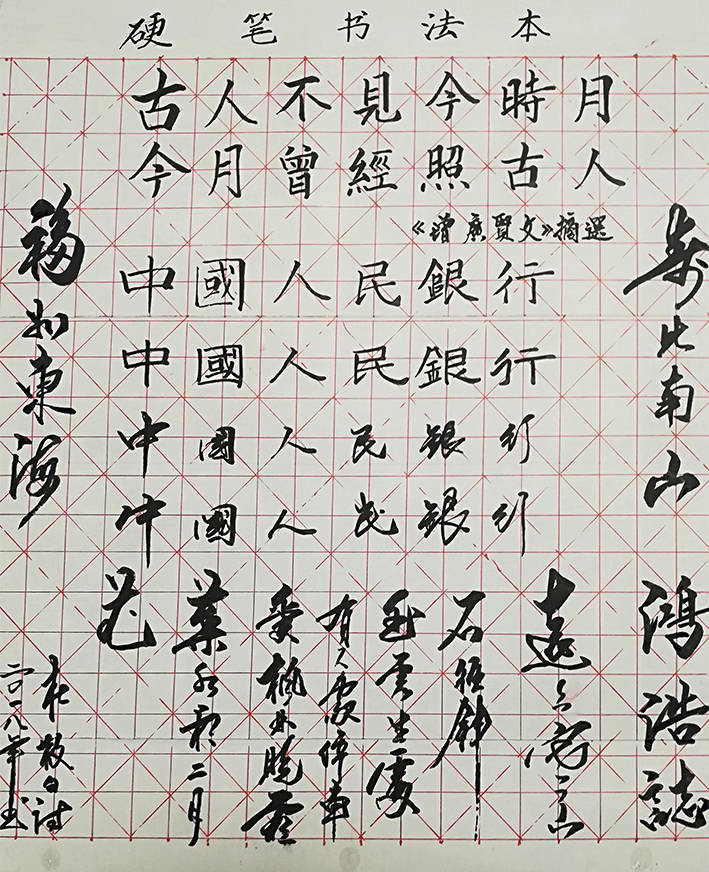 硬笔书法本
古人不見今時月
今月曾經照古人
《增廣賢文》摘選
中國人民銀行
中國人民銀行
中國人民銀行
中國人民銀行
壽比南山
福如東海
鴻浩誌
遠上寒山
石徑斜
白雲生處
有人家停車
愛楓林晚霜
葉紅於二月
花
杜牧的詩
二〇一八年书